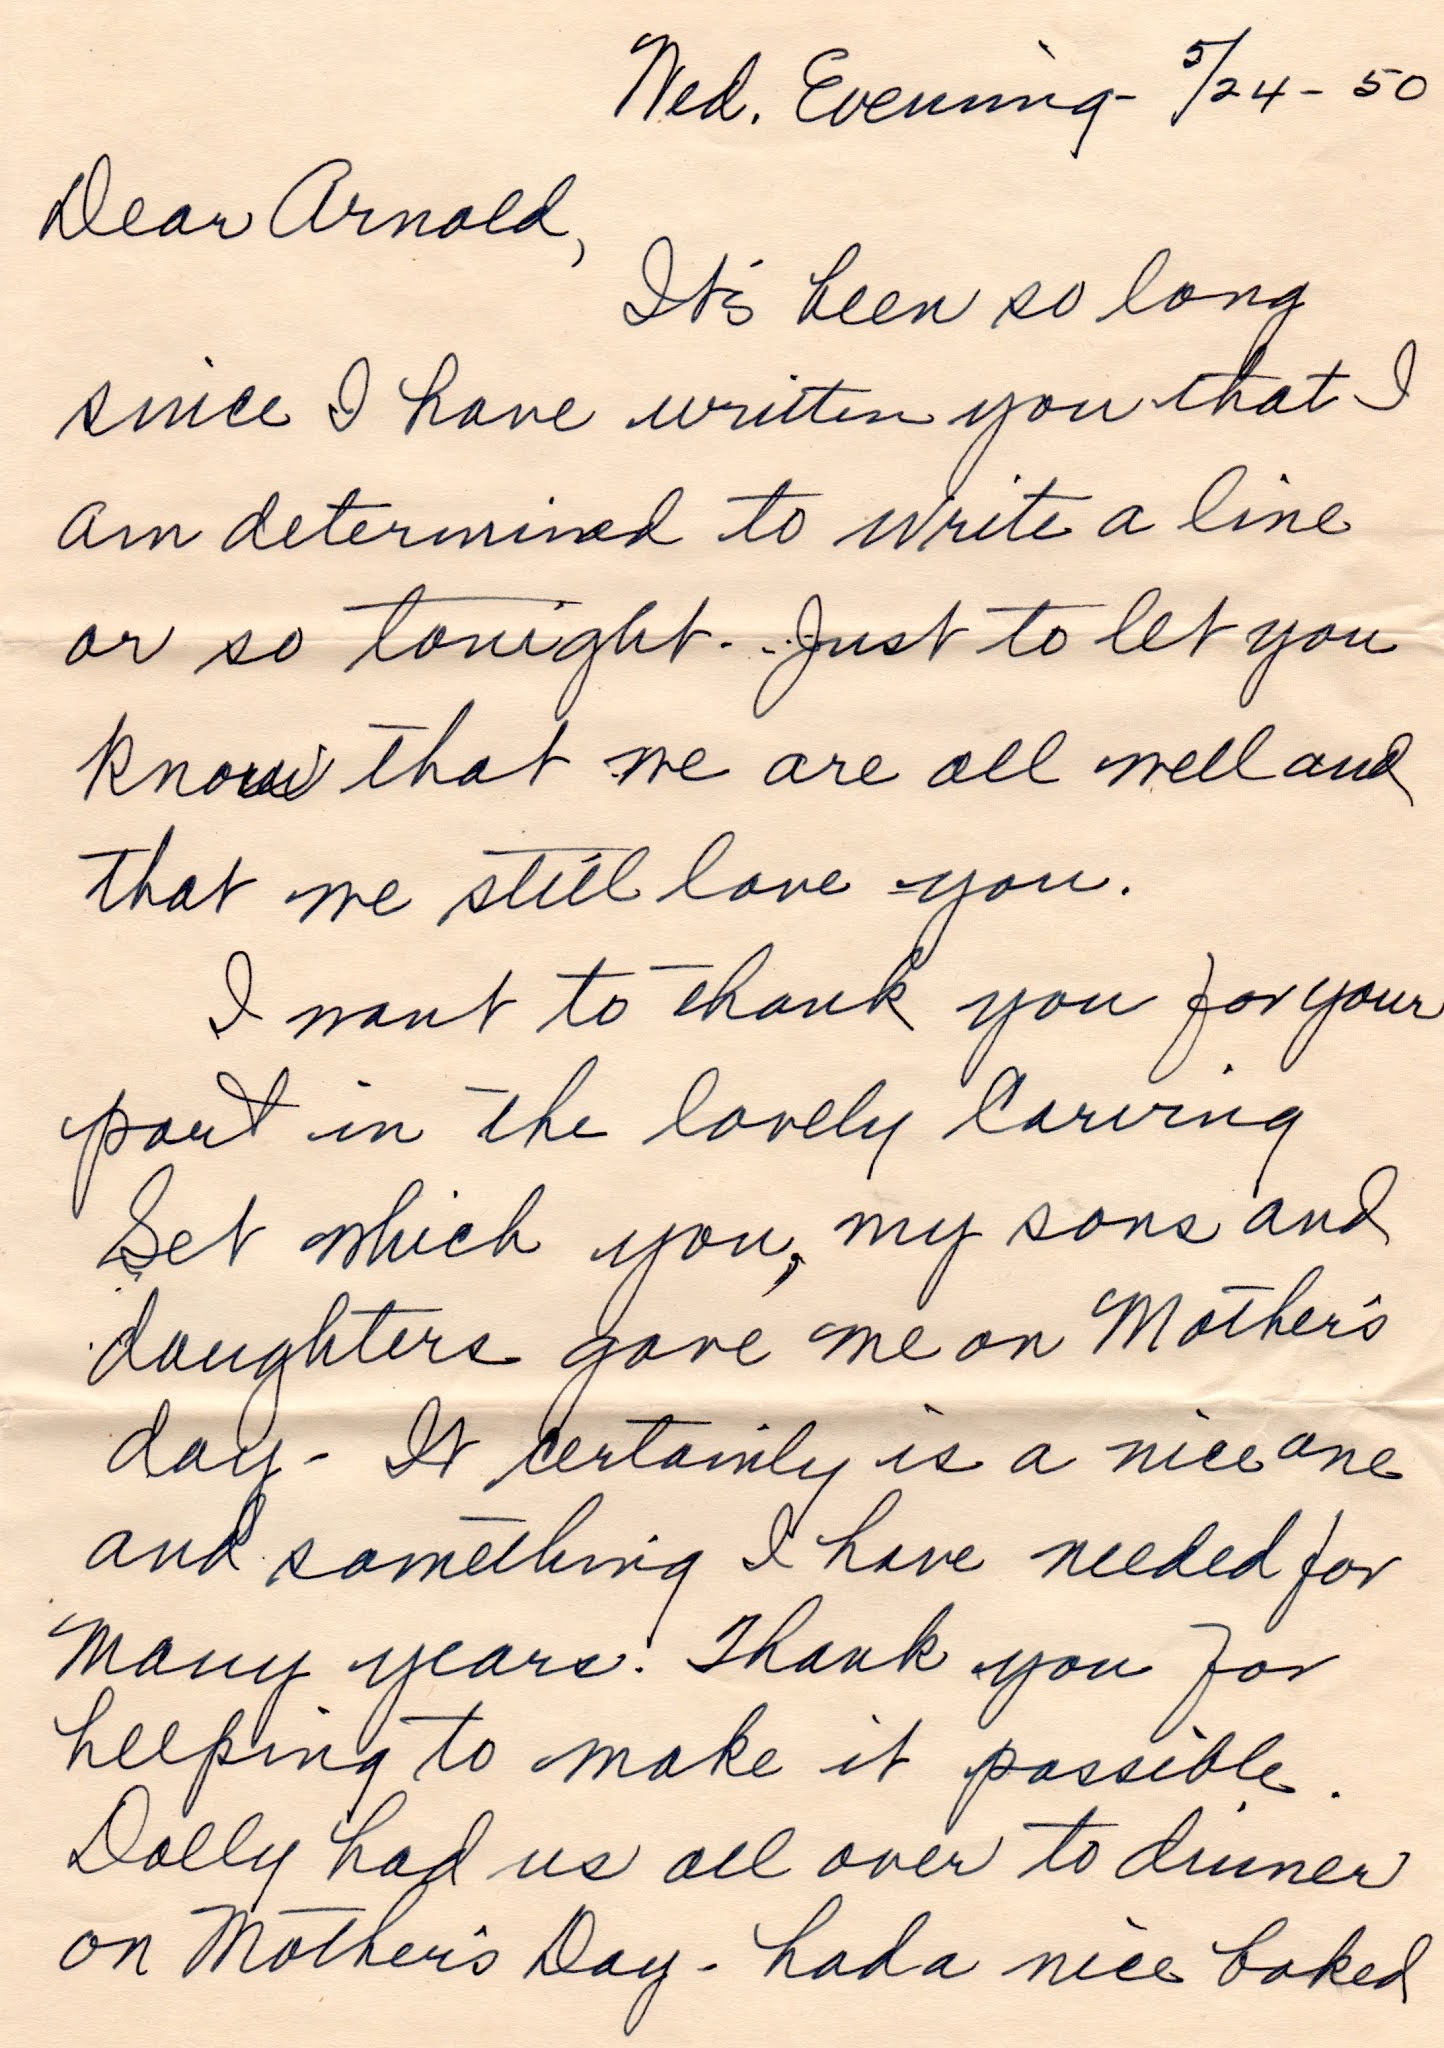 Wed. Evening - 5/24 - 50
Dear Arnold,
It's been so long
since I have written you that I
am determined to write a line
or so tonight - Just to let you
know that we are all well and
that we still love you.
I want to thank you for your
part in the lovely Carving
Set which you, my sons and
daughters gave me on Mother's
day - It certainly is a nice one
and something I have needed for
Many years. Thank you for
helping to make it possible.
Dolly had us all over to dinner
on Mother's Day - had a nice baked